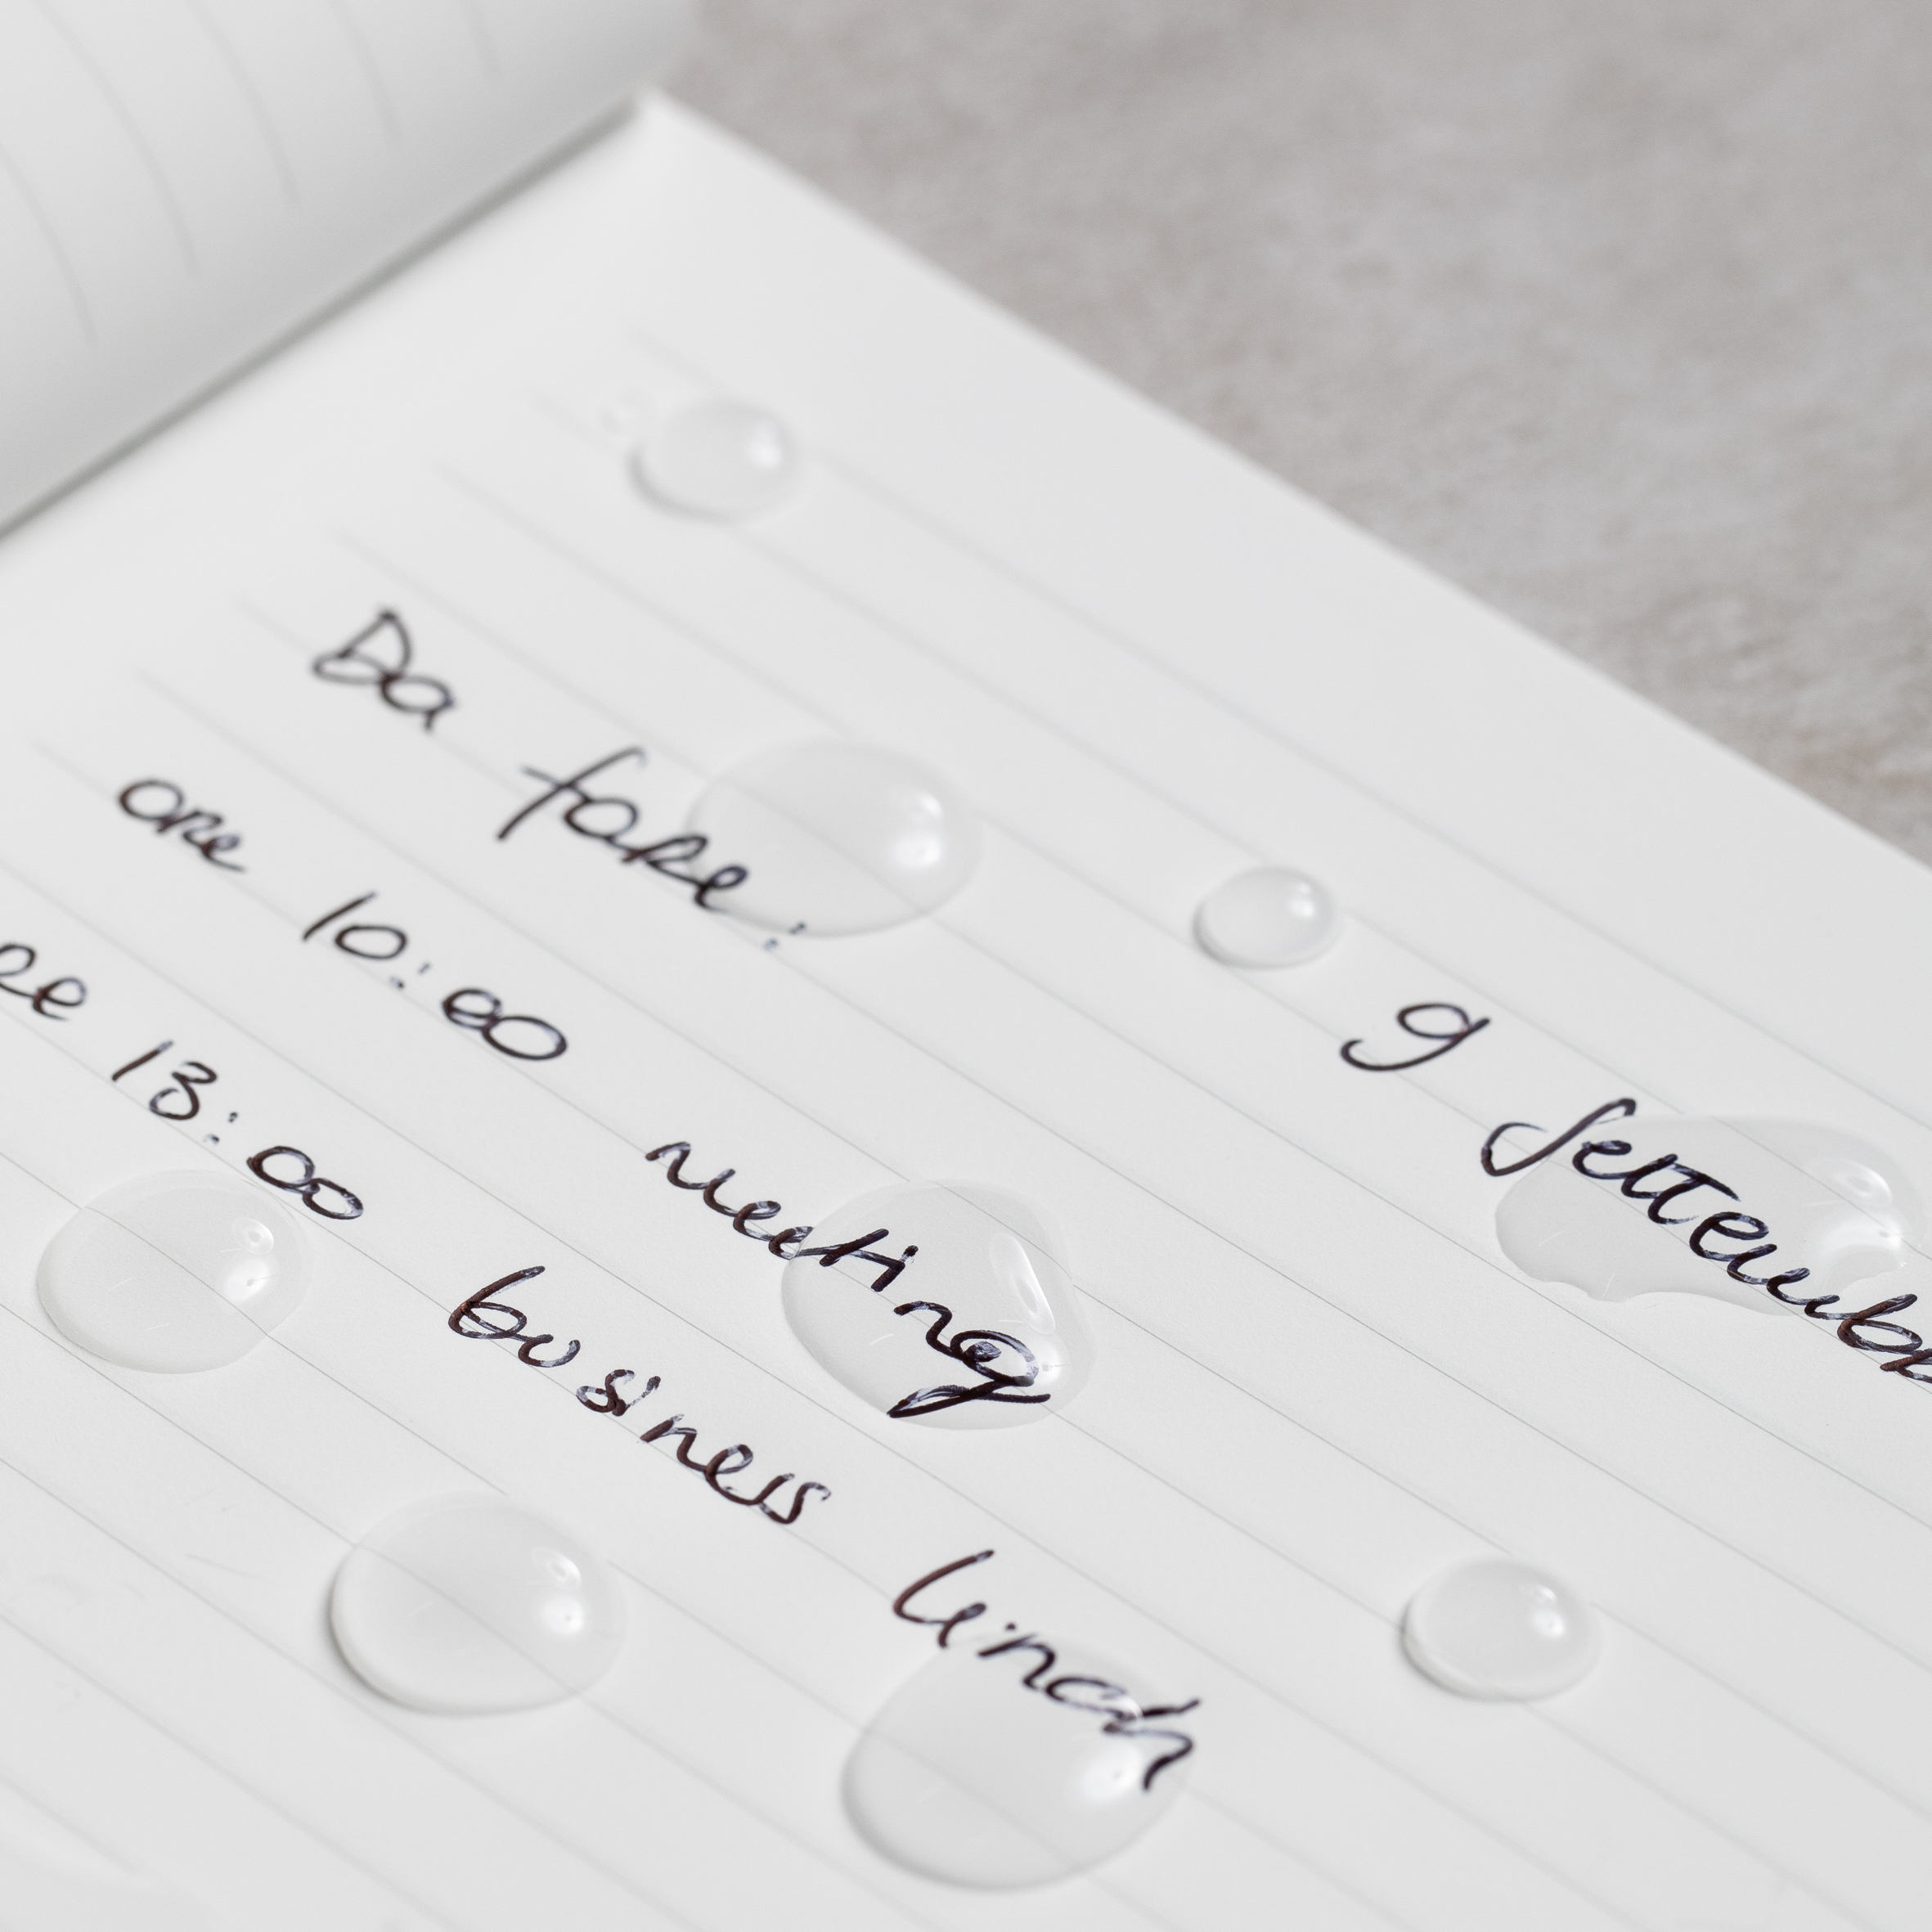 9 Settemb
Da fare:
ore 10:00 meeting
ore 13:00 business lunch